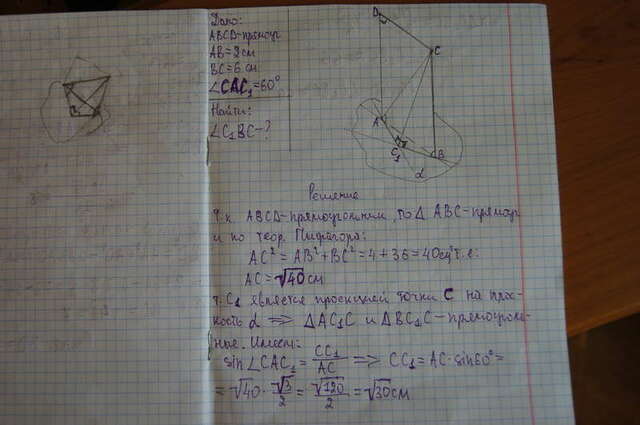 Дано:
ABCD-прямоуг
AB=2см
BC=6см
∠CAC₁=60°
Найти:
∠C₁BC-?
D
C
A
C₁
B
α
Решение
Т.к. ABCD-прямоугольник, то △ABC-прямоуг
и по теор. Пифагора:
AC²=AB²+BC²=4+36=40см² т.е.
AC=√40см
т. C₁ является проекцией точки C на плос-
кость α ⟹ △AC₁C и △BC₁C-прямоуголь-
ные. Имеем:
sin∠CAC₁=CC₁/AC ⟹ CC₁=AC·sin60°=
=√40·√3/2=√120/2=√30см